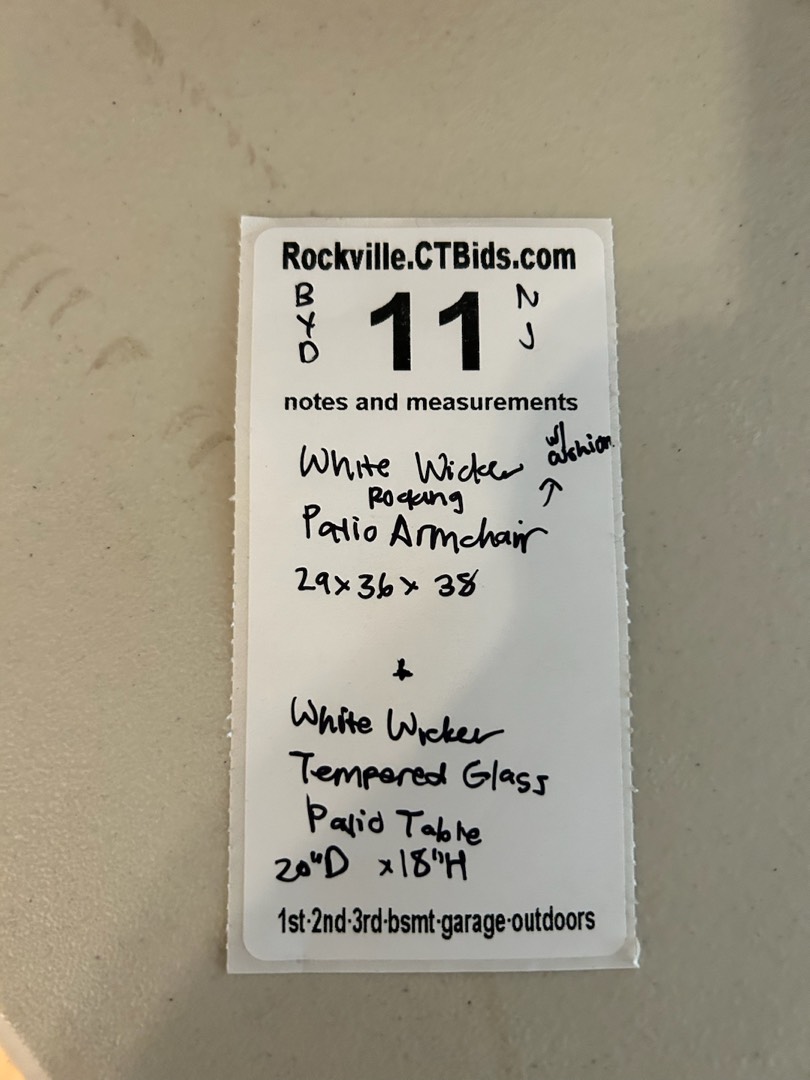 Rockville.CTBids.com
BYD
11
NJ
notes and measurements
White Wicker w/ cushion
Rocking ↑
Patio Armchair
29x36x 38
+
White Wicker
Tempered Glass
Patio Table
20"D x18"H
1st·2nd·3rd·bsmt·garage·outdoors